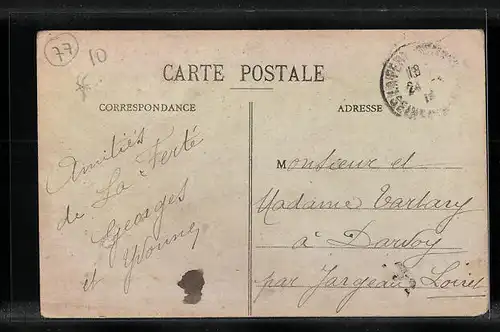 77
10
CARTE POSTALE
CORRESPONDANCE
ADRESSE
Amitiés
de La Ferté
Georges
et Yvonne
Monsieur et
Madame Tarbary
à Darvoy
par Jargeau Loiret